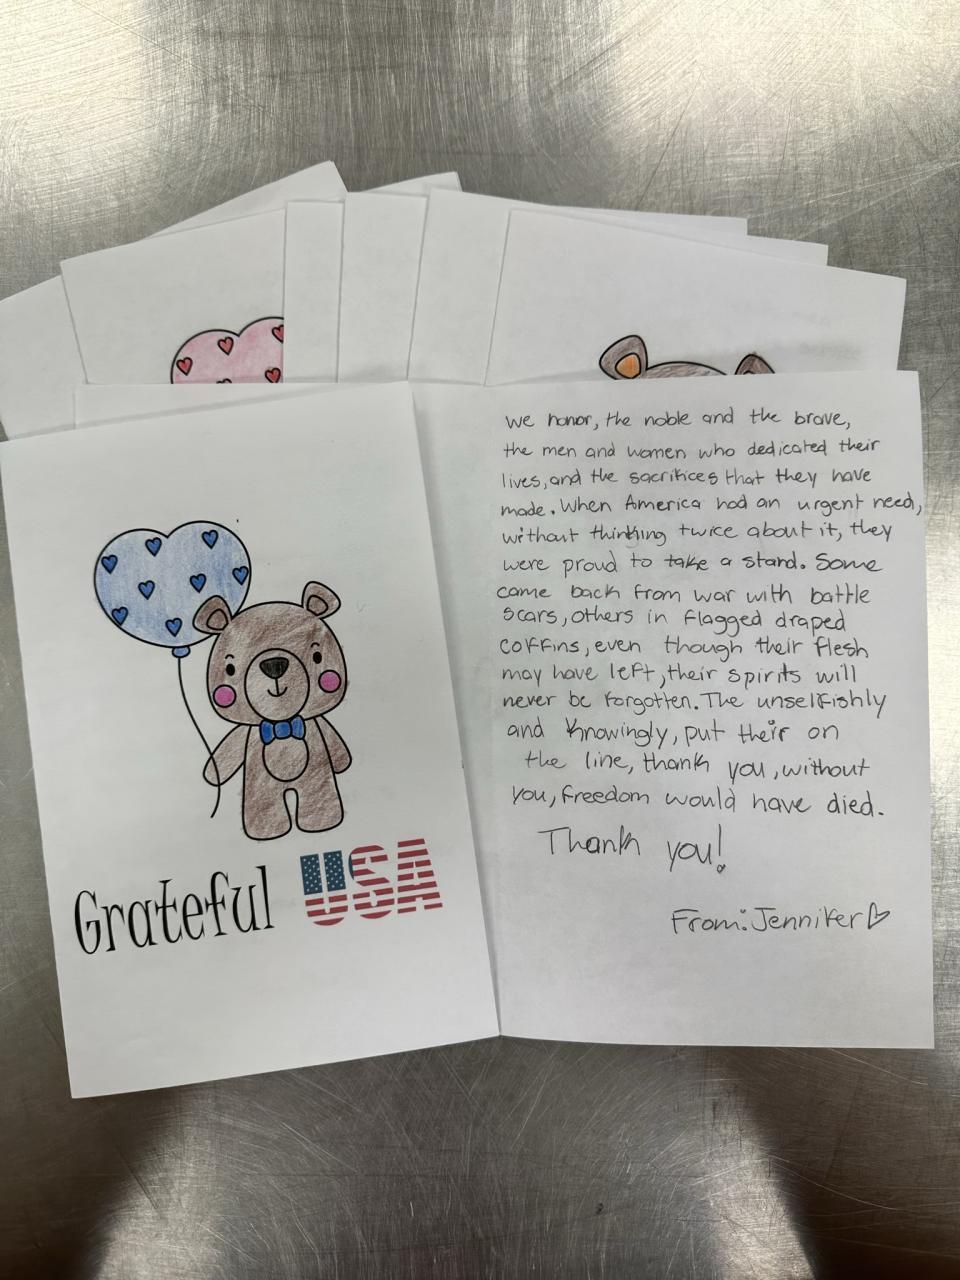 Grateful USA
We honor, the noble and the brave,
the men and women who dedicated their
lives, and the sacrifices that they have
made. When America had an urgent need,
without thinking twice about it, they
were proud to take a stand. Some
came back from war with battle
scars, others in flagged draped
coffins, even though their flesh
may have left, their spirits will
never be forgotten. The unselfishly
and knowingly, put their on
the line, thank you, without
you, freedom would have died.
Thank you!
From: Jennifer